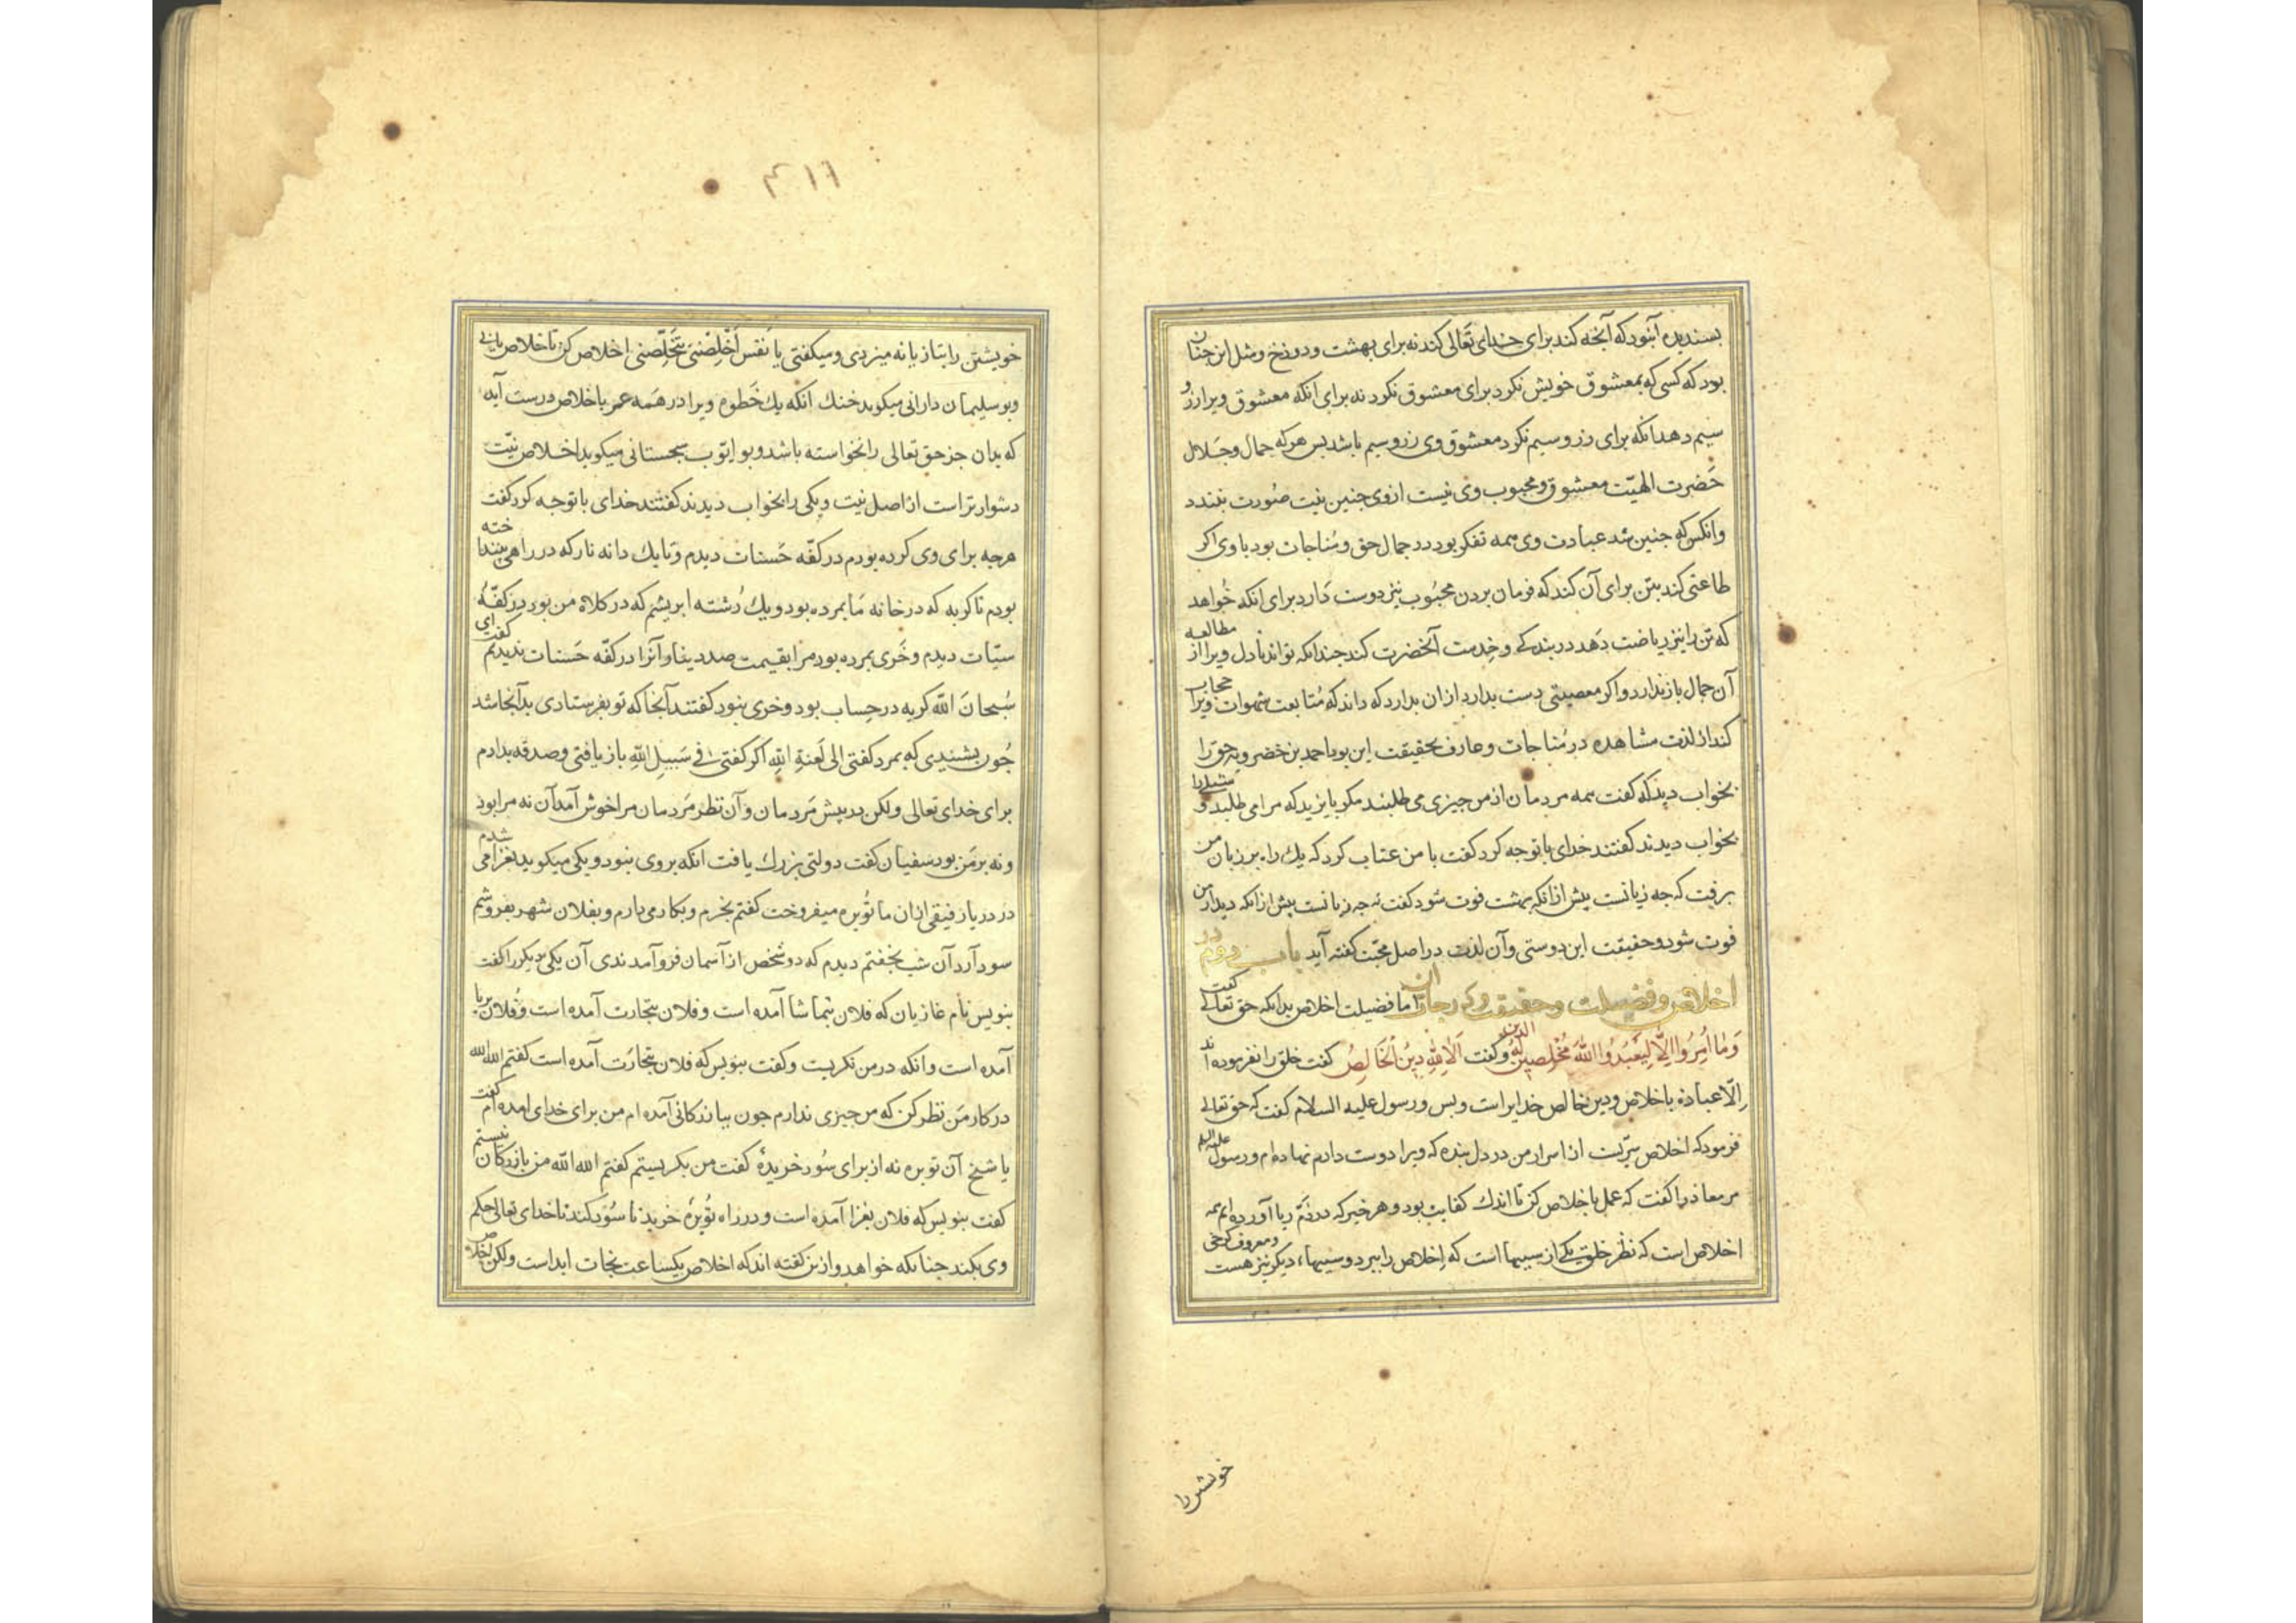 بسندیده آنبود که آنجه کند برای خدای تَعالی کند نه برای بهشت و دوزخ و مثل این جنان
بود که کسی که بمعشوق خویش نکرد برای معشوق نکرد نه برای انکه معشوق ویرا زر و
سیم دهد انکه برای زر و سیم نکرد معشوق وی زر و سیم باشد بس هرکه جمال و جَلال
حَضرت الهیّت معشوق و محبوب وی نیست ازوی جنین نیت صُورت نبندد
وانکس که جنین شد عبادت وی همه تفکر بود در جمال حق و مُناجات بود با وی اکر
طاعتی کند بتن برای آن کند که فرمان بردن محبُوب نیز دوست دَارد برای انکه خُواهد
که تن را نیز ریاضت دَهد در بندکی و خِدمت آنحضرت کند جندانکه تواند تا دل ویرا از مطالعه
آن جمال باز ندارد و اکر معصیتی دست بدارد ازان بدارد که داند که مُتابعت شهوات ویرا حجاب
کند از لذت مشاهده در مُناجات و عارف بحقیقت این بود احمد بن خضرویه حق را
بخواب دید که کفت همه مردمان از من جیزی می طلبند مکر بایزید که مرا می طلبد و شبلی را
بخواب دیدند کفتند خدای با توجه کرد کفت با من عتاب کرد که یک راه بر زبان من
برفت که جه زیانست بیش از انکه بهشت فوت شود کفت نه جه زیانست بیش از انکه دیدار من
فوت شود و حقیقت این دوستی و آن لذت در اصل محبّت کفته آید باب دوم در
اخلاص و فضیلت و حقیقت و درجات ان اما فضیلت اخلاص بدانکه حق تعالی کفت
وَمٰا اُمِرُوا اِلَّا لِیَعْبُدُوا اللّٰهَ مُخْلِصِینَ لَهُ الدین و کفت اَلَا لِلّٰهِ دِینُ الْخَالِصُ کفت خلق را نفرموده اند
اِلّا عبادة باخلاص و دین خالص خدایراست و بس و رسول علیه السلام کفت که حق تعالی
فرمود که اخلاص سرّیست از اسرار من در دل بنده که ویرا دوست دارم نهاده ام و رسول علیه السلام
مر معاذ را کفت که عمل باخلاص کن تا اندک کفایت بود و هر خبر که در ذمّ ریا آورده ایم همه
اخلاص است که نظر خلق یکی از سببها است که اِخلاص را ببرد و سببهاء دیکر نیز هست و معروف کرخی
خویشتن را
۳۱۶
خویشتن را بتازیانه میزدی و میکفتی یا نَفس اَخْلِصْنی تَتَخَلِّصنی اخلاص کن تا خلاص یابی
و بو سلیمان دارانی میکوید خنک انکه یک خَطوه ویرا در هَمه عمر باخلاص درست آید
که بدان جز حق تعالی را نخواسته باشد و بو ایّوب سجستانی میکوید اخلاص نیّت
دشوارتر است از اصل نیت و یکی را بخواب دیدند کفتند خدای با توجه کرد کفت
هرجه برای وی کرده بودم در کفّه حَسنات دیدم و تا یک دانه نار که در راهی بینداخته
بودم تا کربه که در خانه مَا بمرده بود و یک رُشته ابریشم که در کلاه من بود در کفّهٔ
سیّات دیدم و خَری بمرده بود مرا بقیمت صد دینار و آنرا در کفّه حَسنات ندیدم کفتم ای
سُبحانَ اللّه کربه در حِساب بود و خری نبود کفتند آنجا که تو بفرستادی بدآنجا شد
جُون بشنیدی که بمرد کفتی الی لَعنةِ اللهِ اکر کفتی فی سَبیلِ اللّهِ باز یافتی و صدقه بدادم
برای خدای تعالی ولکن در بیش مَردمان و آن نظر مَردمان مرا خوش آمد آن نه مرا بود
و نه بر من بود سفیان کفت دولتی بزرك یافت انکه بر وی نبود و یکی میکوید بغزا می شدم
در دریا رفیقی ازان ما تُوبره میفروخت کفتم بخرم و بکار می دارم و بفلان شهر بفروشم
سود آرد آن شب بخفتم دیدم که دو شخص از آسمان فرو آمدندی آن یکی دیکر را کفت
بنویس نام غازیان که فلان بتماشا آمده است و فلان بتجارت آمده است و فلان بریا
آمده است و انکه در من نکریست و کفت بنویس که فلان بتجارَت آمده است کفتم الله الله
در کار من نظر کن که من جیزی ندارم جون ببازرکانی آمده ام من برای خدای امده ام کفت
یا شیخ آن توبره نه از برای سُود خریدهٔ کفت من بکریستم کفتم الله الله من بازرکان نیستم
کفت بنویس که فلان بغزا آمده است و در راه تُوبرهٔ خرید تا سُود کند تا خدای تعالی حکم
وی بکند جنانکه خواهد و از ین کفته اند که اخلاص یکساعت نجات ابد است ولکن اخلاص